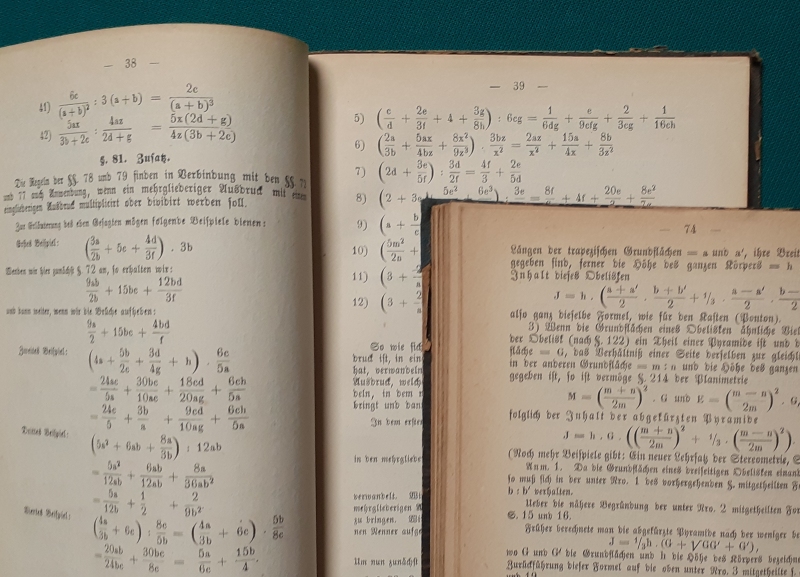 — 38 —
41) 6c/(a+b)² : 3 (a+b) = 2c/(a+b)³
42) 5ax/3b+2c : 4az/2d+g = 5x(2d+g)/4z(3b+2c)
§. 81. Zusatz.
Die Regeln der §§. 78 und 79 finden in Verbindung mit den §§. 72
und 77 auch Anwendung, wenn ein mehrgliederiger Ausdruck mit einem
eingliederigen Ausdruck multiplicirt oder dividirt werden soll.
Zur Erläuterung des eben Gesagten mögen folgende Beispiele dienen:
Erstes Beispiel:
(3a/2b + 5c + 4d/3f) . 3b
Wenden wir hier zunächst §. 72 an, so erhalten wir:
9ab/2b + 15bc + 12bd/3f
und dann weiter, wenn wir die Brüche aufheben:
9a/2 + 15bc + 4bd/f
Zweites Beispiel:
(4a + 5b/2c + 3d/4g + h) . 6c/5a
= 24ac/5a + 30bc/10ac + 18cd/20ag + 6ch/5a
= 24c/5 + 3b/a + 9cd/10ag + 6ch/5a
Drittes Beispiel:
(5a² + 6ab + 8a/3b) : 12ab
= 5a²/12ab + 6ab/12ab + 8a/36ab²
= 5a/12b + 1/2 + 2/9b²
Viertes Beispiel:
(4a/3b + 6c) : 8c/5b = (4a/3b + 6c) . 5b/8c
= 20ab/24bc + 30bc/8c = 5a/6c + 15b/4
— 39 —
5) (c/d + 2e/3f + 4 + 3g/8h) : 6cg = 1/6dg + e/9cfg + 2/3cg + 1/16ch
6) (2a/3b + 5ax/4bz + 8x²/9z³) . 3bz/x² = 2az/x² + 15a/4x + 8b/3z²
7) (2d + 3e/5f) : 3d/2f = 4f/3 + 2e/5d
8) (2 + 3e 5e² 6e³) : 3e = 8f + 4f + 20e + 8e²
9) (a + b/c
10) (5m²/2n
11) (3 +
12) (3 + 2/4
So wie sich
bruch ist, in ein
hat, verwandeln
Ausdruck, welch
beln, in dem n
bringt und dan
In dem ersten
in den mehrgliebe
verwandelt. Wi
mehrgliederigen A
zu bringen. Wi
nen Nenner aufge
Um nun zunächst
74
Längen der trapezischen Grundflächen = a und a', ihre Breit
gegeben sind, ferner die Höhe des ganzen Körpers = h
Inhalt dieses Obelisken
J = h . (a + a'/2 . b + b'/2 + 1/3 . a — a'/2 . b —/2
also ganz dieselbe Formel, wie für den Kasten (Ponton).
3) Wenn die Grundflächen eines Obelisken ähnliche Viel
der Obelisk (nach §. 122) ein Theil einer Pyramide ist und d
fläche = G, das Verhältniß einer Seite derselben zur gleichli
in der anderen Grundfläche = m : n und die Höhe des ganzen
gegeben ist, so ist vermöge §. 214 der Planimetrie
M = (m + n/2m)² . G und E = (m — n/2m)² . G,
folglich der Inhalt der abgekürzten Pyramide
J = h . G . ((m + n/2m)² + 1/3 . (m — n/2m)²).
(Noch mehr Beispiele gibt: Ein neuer Lehrsatz der Stereometrie, S
Anm. 1. Da die Grundflächen eines dreiseitigen Obelisken einande
so muß sich in der unter Nro. 1 des vorhergehenden §. mitgetheilten F
b : b' verhalten.
Ueber die nähere Begründung der unter Nro. 2 mitgetheilten For
S. 15 und 16.
Früher berechnete man die abgekürzte Pyramide nach der weniger be
J = 1/3h . (G + √GG' + G'),
wo G und G' die Grundflächen und h die Höhe des Körpers bezeichn
Zurückführung dieser Formel auf die oben unter Nro. 3 mitgetheilte s.
und 19.